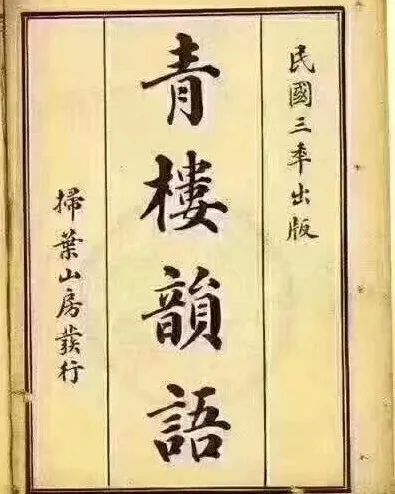 民國三年出版
青樓韻語
掃葉山房發行